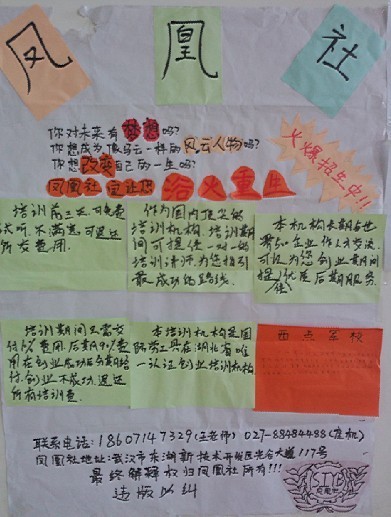 凤凰社
你对未来有梦想吗?
你想成为像马云一样的风云人物吗?
你想改变自己的一生吗?
火爆招生中!!
凤凰社定让您浴火重生
培训前三天,可免费
试听.不满意,可退还
所交费用.
作为国内顶尖的
培训机构.培训期
间可提供一对一的
培训讲师,为您指引
最成功的路线.
本机构长期与世
企业作人才交流,
可以为您创业期间
提供优质后期服务.
培训期间只需交
付10%费用.后期90%费
用在创业成功后分期给
付.创业不成功,退还
所有培训费.
本培训机构是国
际劳工组织在湖北省唯
一认证创业培训机构.
西点军校
联系电话:18607147329(王老师) 027-88484488(座机)
凤凰社地址:武汉市东湖新技术开发区光谷大道117号
最终解释权归凤凰社所有!!!
违版必纠